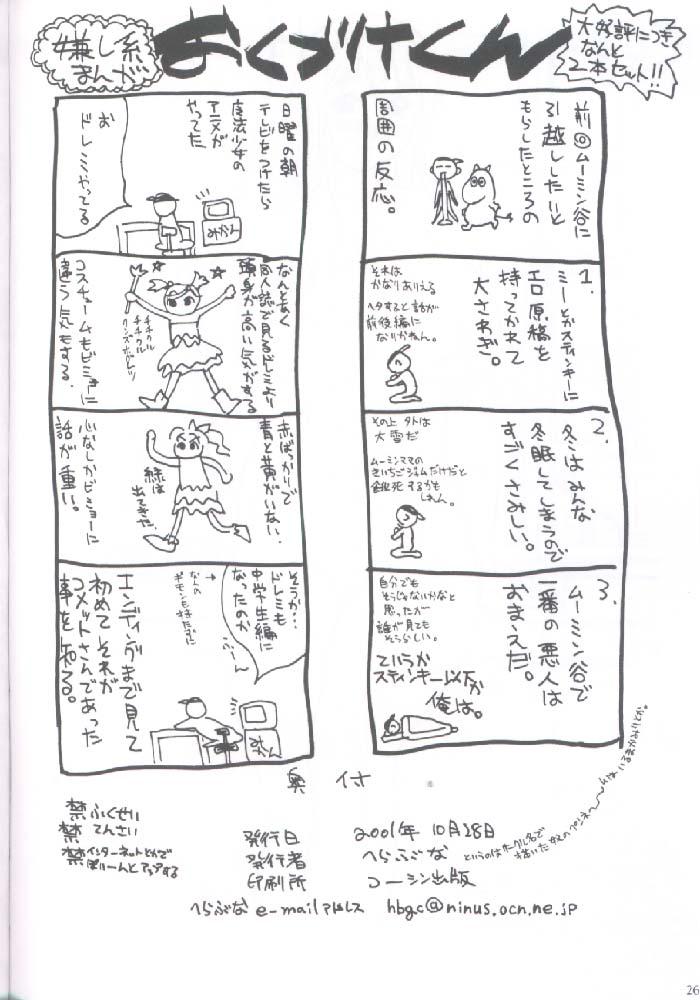 嫌し系
まんが
おくづけくん
大好評につき
なんと
2本セット!!
前回ムーミン谷に
引越ししたいと
もらしたところの
周囲の反応。
1.
ミーとかスティンキーに
エロ原稿を
持ってかれて
大さわぎ。
それは
かなりありえる
ヘタすると話が
前後編に
なりかねん。
2.
冬はみんな
冬眠してしまうので
すごくさみしい。
その上外は
大雪だ
ムーミンママの
きいちごジャムだけだと
餓死するかも
しれん。
3.
ムーミン谷で
一番の悪人は
おまえだ。
自分でも
そうじゃないかなと
思ったが
誰が見ても
そうらしい。
ていうか
スティンキー以下か
俺は。
日曜の朝
テレビをつけたら
魔法少女の
アニメが
やってた
お
ドレミやってる
みかん
なんとなく
同人誌で見るドレミより
頭身が高い気がする
コスチュームもビミョーに
違う気もする。
赤ばっかりで
青と黄がいない。
緑は
出てきた
心なしかビョーに
話が重い。
そうか…
ドレミも
中学生編に
なったのか
なんの
ギモンも持たずに
エンディングまで見て
初めてそれが
コメットさんであった
事を知る。
みかん
奥付
禁ふくせい
禁てんさい
禁インターネットとかで
ばりーんとアップする
発行日 2001年10月28日
発行者 へらぶな
印刷所 コーシン出版
へらぶな e-mailアドレス hbgc@ninus.ocn.ne.jp
26